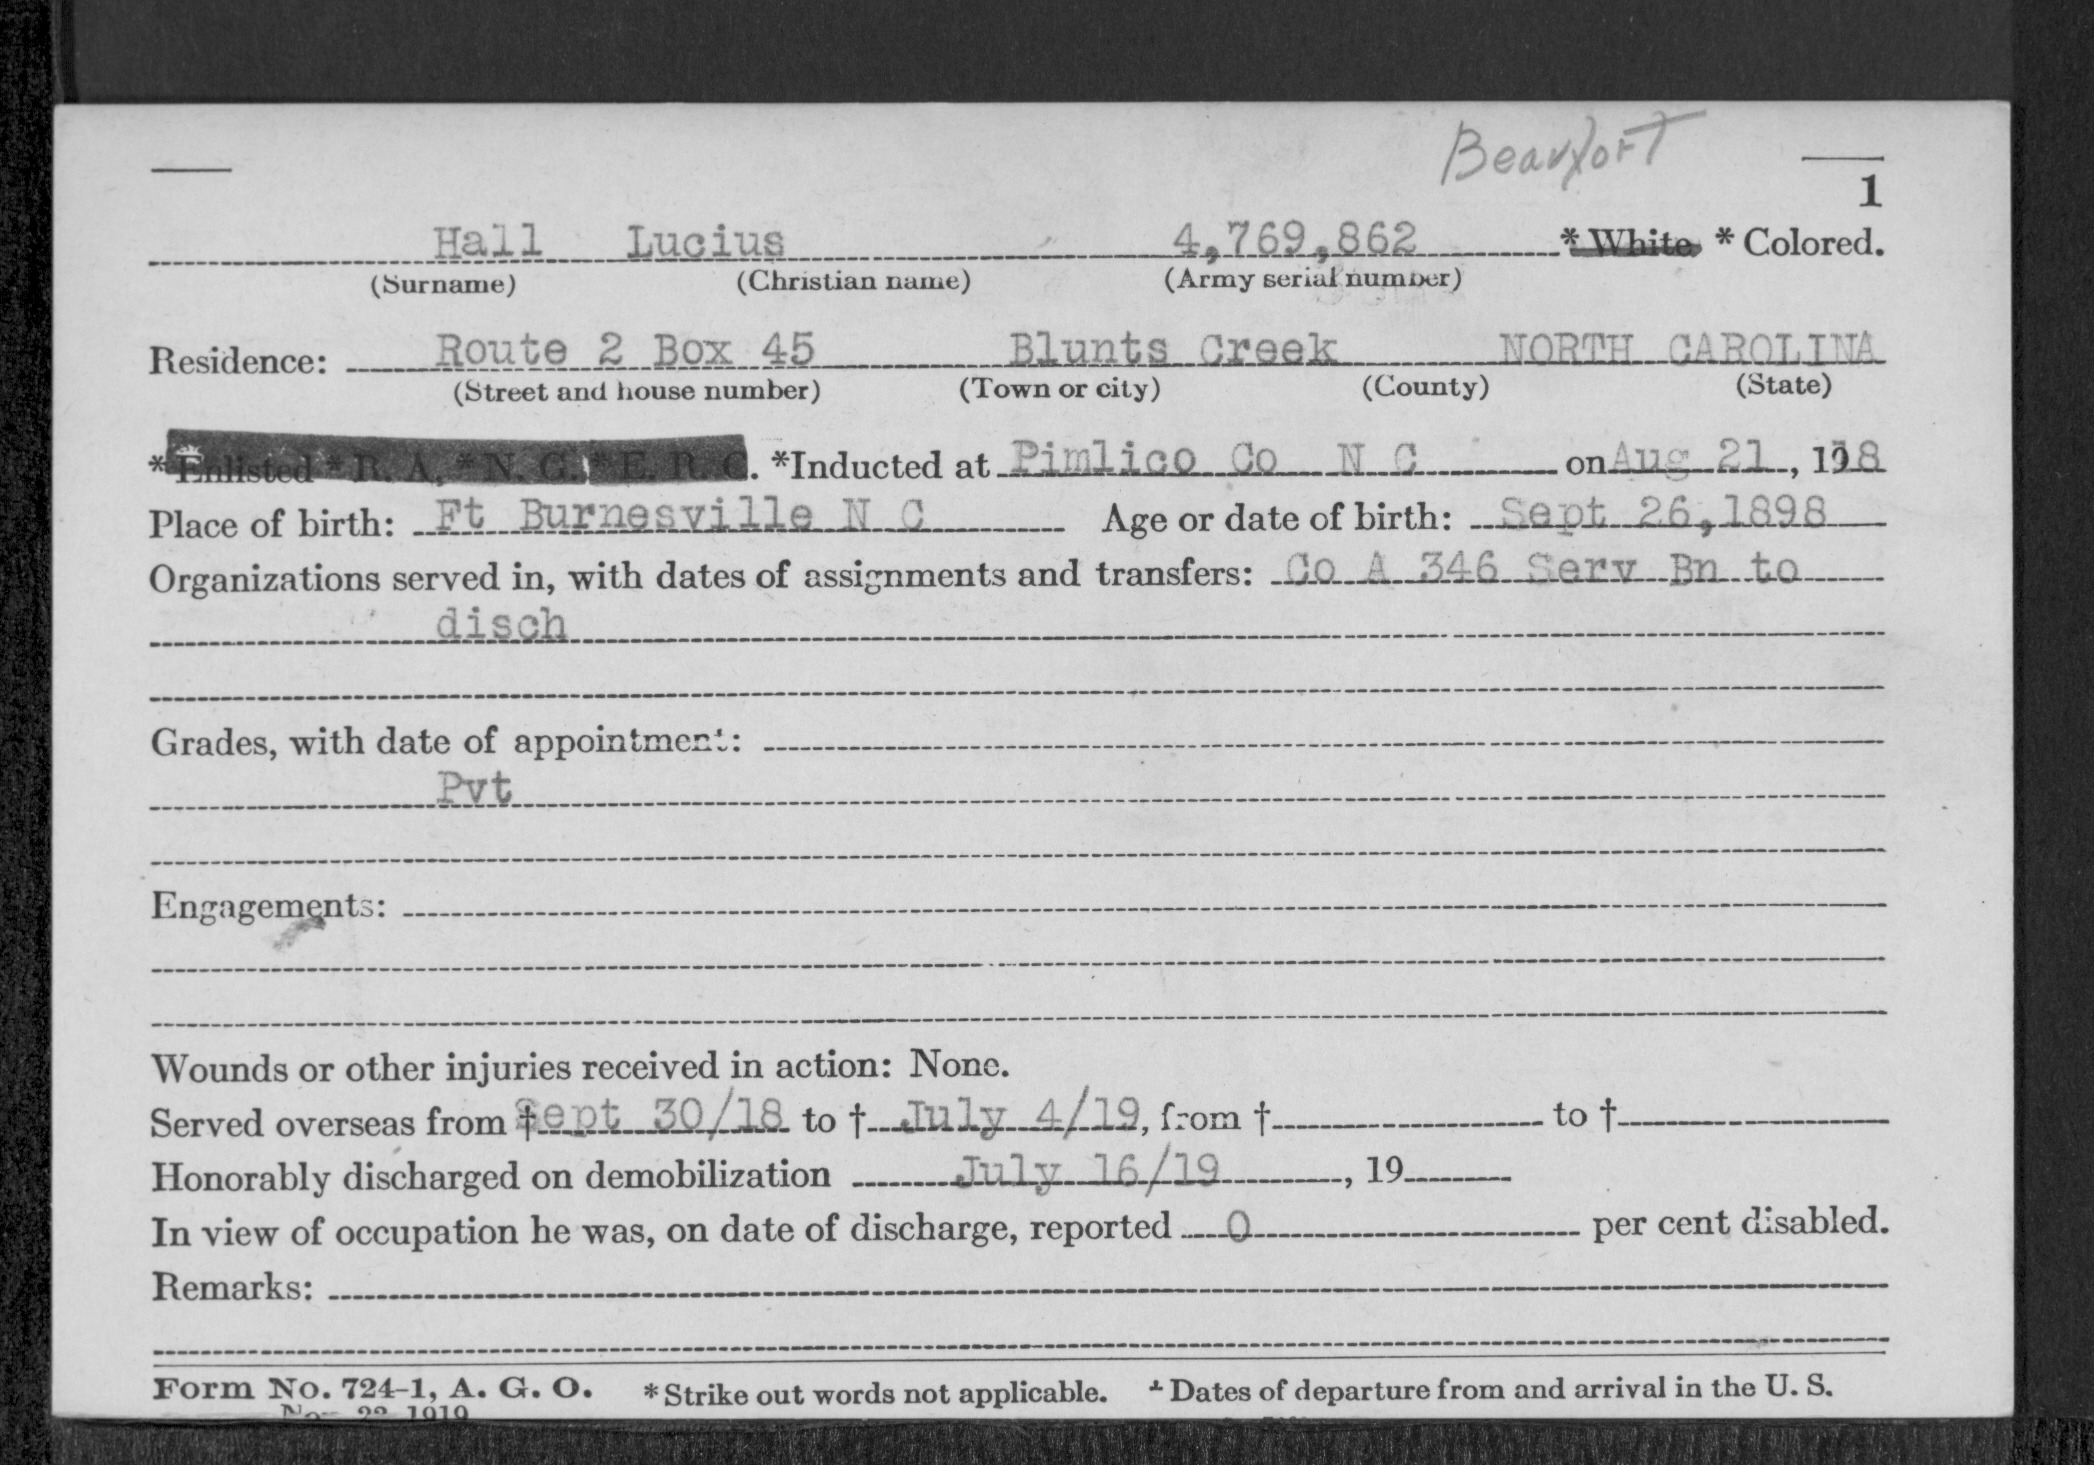 Beaufort
1
Hall Lucius 4,769,862 * White * Colored.
(Surname) (Christian name) (Army serial number)
Residence: Route 2 Box 45 Blunts Creek NORTH CAROLINA
(Street and house number) (Town or city) (County) (State)
* Enlisted * R. A. * N. G. * E. R. C. *Inducted at Pimlico Co N C on Aug 21, 1918
Place of birth: Ft Burnesville N C Age or date of birth: Sept 26, 1898
Organizations served in, with dates of assignments and transfers: Co A 346 Serv Bn to
disch
Grades, with date of appointment:
Pvt
Engagements:
Wounds or other injuries received in action: None.
Served overseas from † Sept 30/18 to † July 4/19, from † to †
Honorably discharged on demobilization July 16/19, 19
In view of occupation he was, on date of discharge, reported 0 per cent disabled.
Remarks:
Form No. 724-1, A. G. O. *Strike out words not applicable. † Dates of departure from and arrival in the U. S.
Nov 22 1919